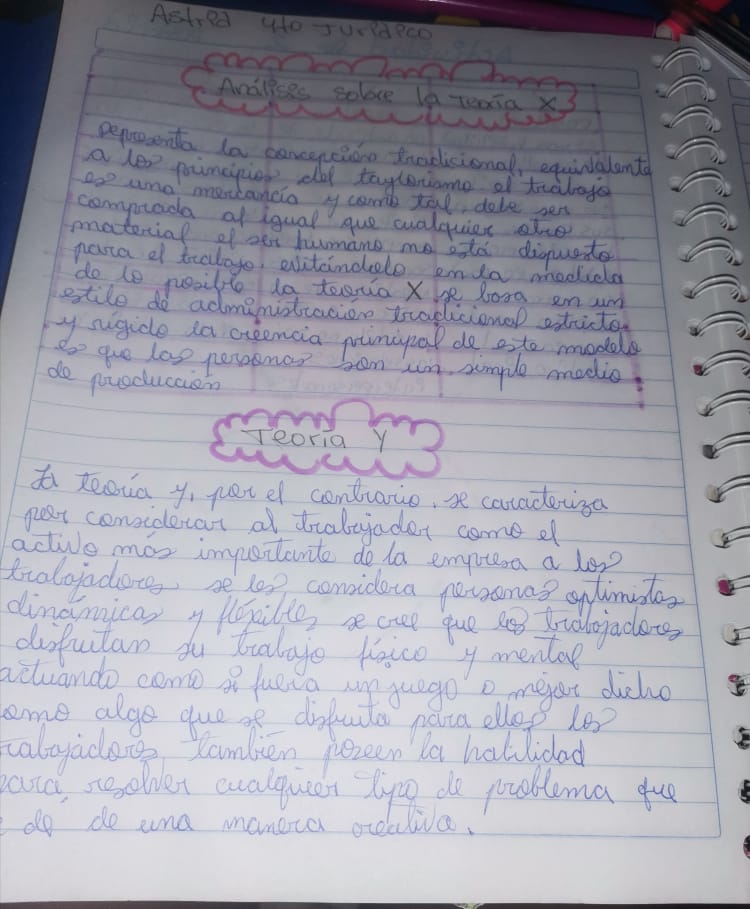 Astrid 4to Jurídico
Análises sobre la Teoría X
Representa la concepción tradicional, equivalente
a los principios del taylorismo el trabajo
es una mercancía y como tal, debe ser
comprada al igual que cualquier otro
material el ser humano no está dispuesto
para el trabajo, evitándolo en la medida
de lo posible la teoría X se basa en un
estilo de administración tradicional estricto
y rígido la creencia principal de este modelo
es que las personas son un simple medio
de producción
Teoría Y
La teoría y, por el contrario, se caracteriza
por considerar al trabajador como el
activo más importante de la empresa a los
trabajadores se les considera personas optimistas
dinámicas y flexibles se cree que los trabajadores
disfrutan su trabajo físico y mental
actuando como si fuera un juego o mejor dicho
omo algo que se disfruta para ellos los
rabajadores, también poseen la habilidad
para resolver cualquier tipo de problema que
de de una manera creativa.